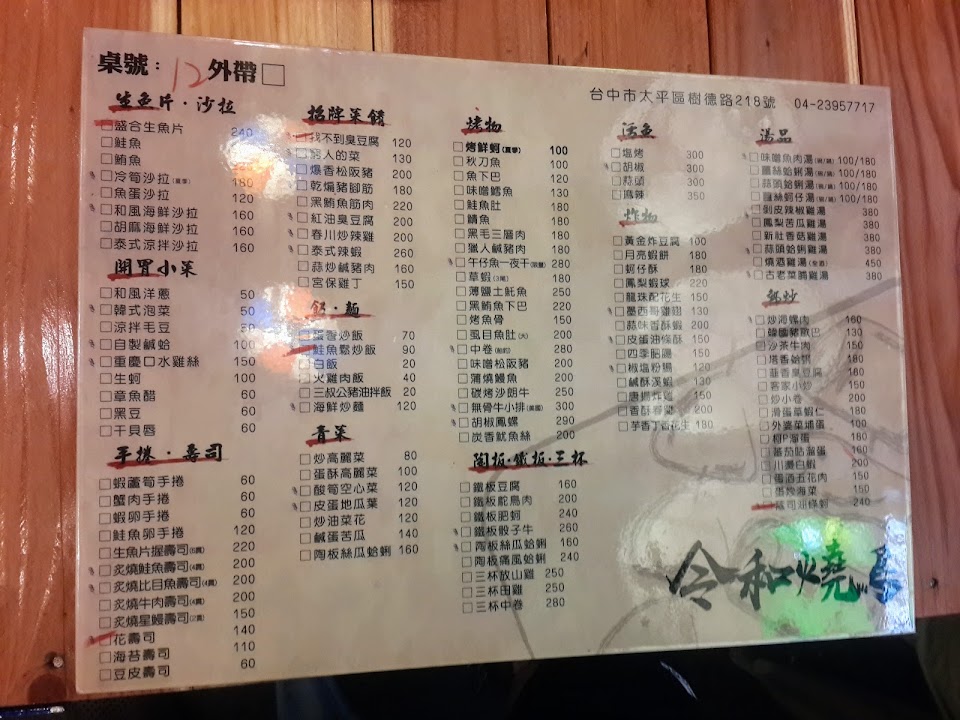 桌號： 12 外帶□
台中市太平區樹德路218號 04-23957717
生魚片·沙拉
□盛合生魚片 240
□鮭魚
□鮪魚
□冷筍沙拉(夏季) 180
□魚蛋沙拉 120
□和風海鮮沙拉 160
□胡麻海鮮沙拉 160
□泰式涼拌沙拉 160
開胃小菜
□和風洋蔥 50
□韓式泡菜 50
□涼拌毛豆
□自製鹹蛤 100
□重慶口水雞絲 150
□生蚵 100
□章魚醋 60
□黑豆 60
□干貝唇 60
手捲·壽司
□蝦蘆筍手捲 60
□蟹肉手捲 60
□蝦卵手捲 60
□鮭魚卵手捲 120
□生魚片握壽司(6貫) 220
□炙燒鮭魚壽司(4貫) 200
□炙燒比目魚壽司(4貫) 200
□炙燒牛肉壽司(4貫) 200
□炙燒星鰻壽司(2貫) 150
□花壽司 140
□海苔壽司 110
□豆皮壽司 60
招牌菜餚
□找不到臭豆腐 120
□窮人的菜 130
□爆香松阪豬 200
□乾煸豬腳筋 180
□黑鮪魚筋肉 220
□紅油臭豆腐 200
□春川炒辣雞 200
□泰式辣蝦 260
□蒜炒鹹豬肉 160
□宮保雞丁 150
飯·麵
□蛋香炒飯 70
□鮭魚鬆炒飯 90
□白飯 20
□火雞肉飯 40
□三叔公豬油拌飯 20
□海鮮炒麵 120
青菜
□炒高麗菜 80
□蛋酥高麗菜 100
□酸筍空心菜 120
□皮蛋地瓜葉 120
□炒油菜花 120
□鹹蛋苦瓜 140
□陶板絲瓜蛤蜊 160
烤物
□烤鮮蚵(夏季) 100
□秋刀魚 100
□魚下巴 120
□味噌鱈魚 130
□鮭魚肚 180
□鯖魚 150
□黑毛三層肉 180
□獵人鹹豬肉 180
□午仔魚一夜干 280
□草蝦(3尾) 180
□薄鹽土魠魚 250
□黑鮪魚下巴 220
□烤魚骨 150
□虱目魚肚(大) 200
□中卷 280
□味噌松阪豬 200
□蒲燒鰻魚 200
□碳烤沙朗牛 250
□無骨牛小排(美國) 300
□胡椒鳳螺 290
□炭香魷魚絲 200
陶板·鐵板·三杯
□鐵板豆腐 160
□鐵板鴕鳥肉 200
□鐵板肥蚵 240
□鐵板骰子牛 260
□陶板絲瓜蛤蜊 160
□陶板痛風蛤蜊 240
□三杯放山雞 250
□三杯田雞 250
□三杯中卷 280
活魚
□塩烤 300
□胡椒 300
□蒜頭 300
□麻辣 350
炸物
□黃金炸豆腐 100
□月亮蝦餅 180
□蚵仔酥 180
□鳳梨蝦球 220
□龍珠配花生 150
□墨西哥雞翅 130
□蒜味香酥蝦 200
□皮蛋油條酥 150
□四季肥腸 150
□椒塩粉腸 120
□鹹酥溪蝦 130
□唐揚炸雞 150
□香酥 200
□芋香丁香花生 180
湯品
□味噌魚肉湯 100/180
□薑絲蛤蜊湯 100/180
□蒜頭蛤蜊湯 100/180
□薑絲蚵仔湯 100/180
□剝皮辣椒雞湯 380
□鳳梨苦瓜雞湯 380
□新社香菇雞湯 380
□蒜頭蛤蜊雞湯 380
□燒酒雞湯 450
□古老菜脯雞湯 380
熱炒
□炒海螺肉 160
□韓國豬歐巴 130
□沙茶牛肉 150
□塔香蛤蜊 180
□韭香臭豆腐 180
□客家小炒 150
□炒小卷 200
□滑蛋草蝦仁 180
□外婆菜埔蛋 100
□柯P海蛋 180
□蕃茄咕溜蛋 100
□川燙白蝦 200
□蛋酒五花肉 150
□蛋 海菜 150
□壽司油條蚵 240
令和燒鳥